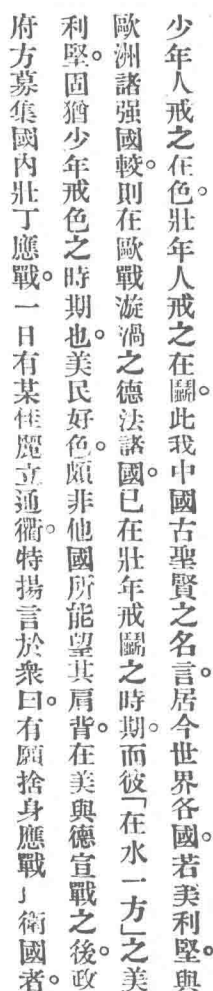 少年人戒之在色。壯年人戒之在鬭。此我中國古聖賢之名言。居今世界各國。若美利堅。與
歐洲諸强國較。則在歐戰漩渦之德法諸國。已在壯年戒鬭之時期。而彼「在水一方」之美
利堅。固猶少年戒色之時期也。美民好色。頗非他國所能望其肩背。在美與德宣戰之後。政
府方募集國內壯丁應戰。一日有某佳麗立通衢。特揚言於衆曰。有願捨身應戰」衛國者。